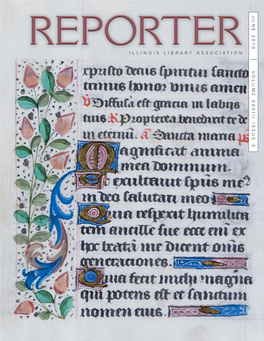 REPORTER
ILLINOIS LIBRARY ASSOCIATION
JUNE 2010 | VOLUME XXVIII ISSUE 2
xpristo decus spiritui sancto
trinus honor unus amen
V Diffusa est gracia in labijs
tuis R Propterea benedixit te de
in eternum. a Sancta maria
Magnificat anima
mea dominum.
Et exultauit spus me
in deo salutari meo
Quia respexit humilita
tem ancille sue ecce eni ex
hoc beatam me dicent omes
generaciones.
Quia fecit michi magna
qui potens est et sanctum
nomen eius.